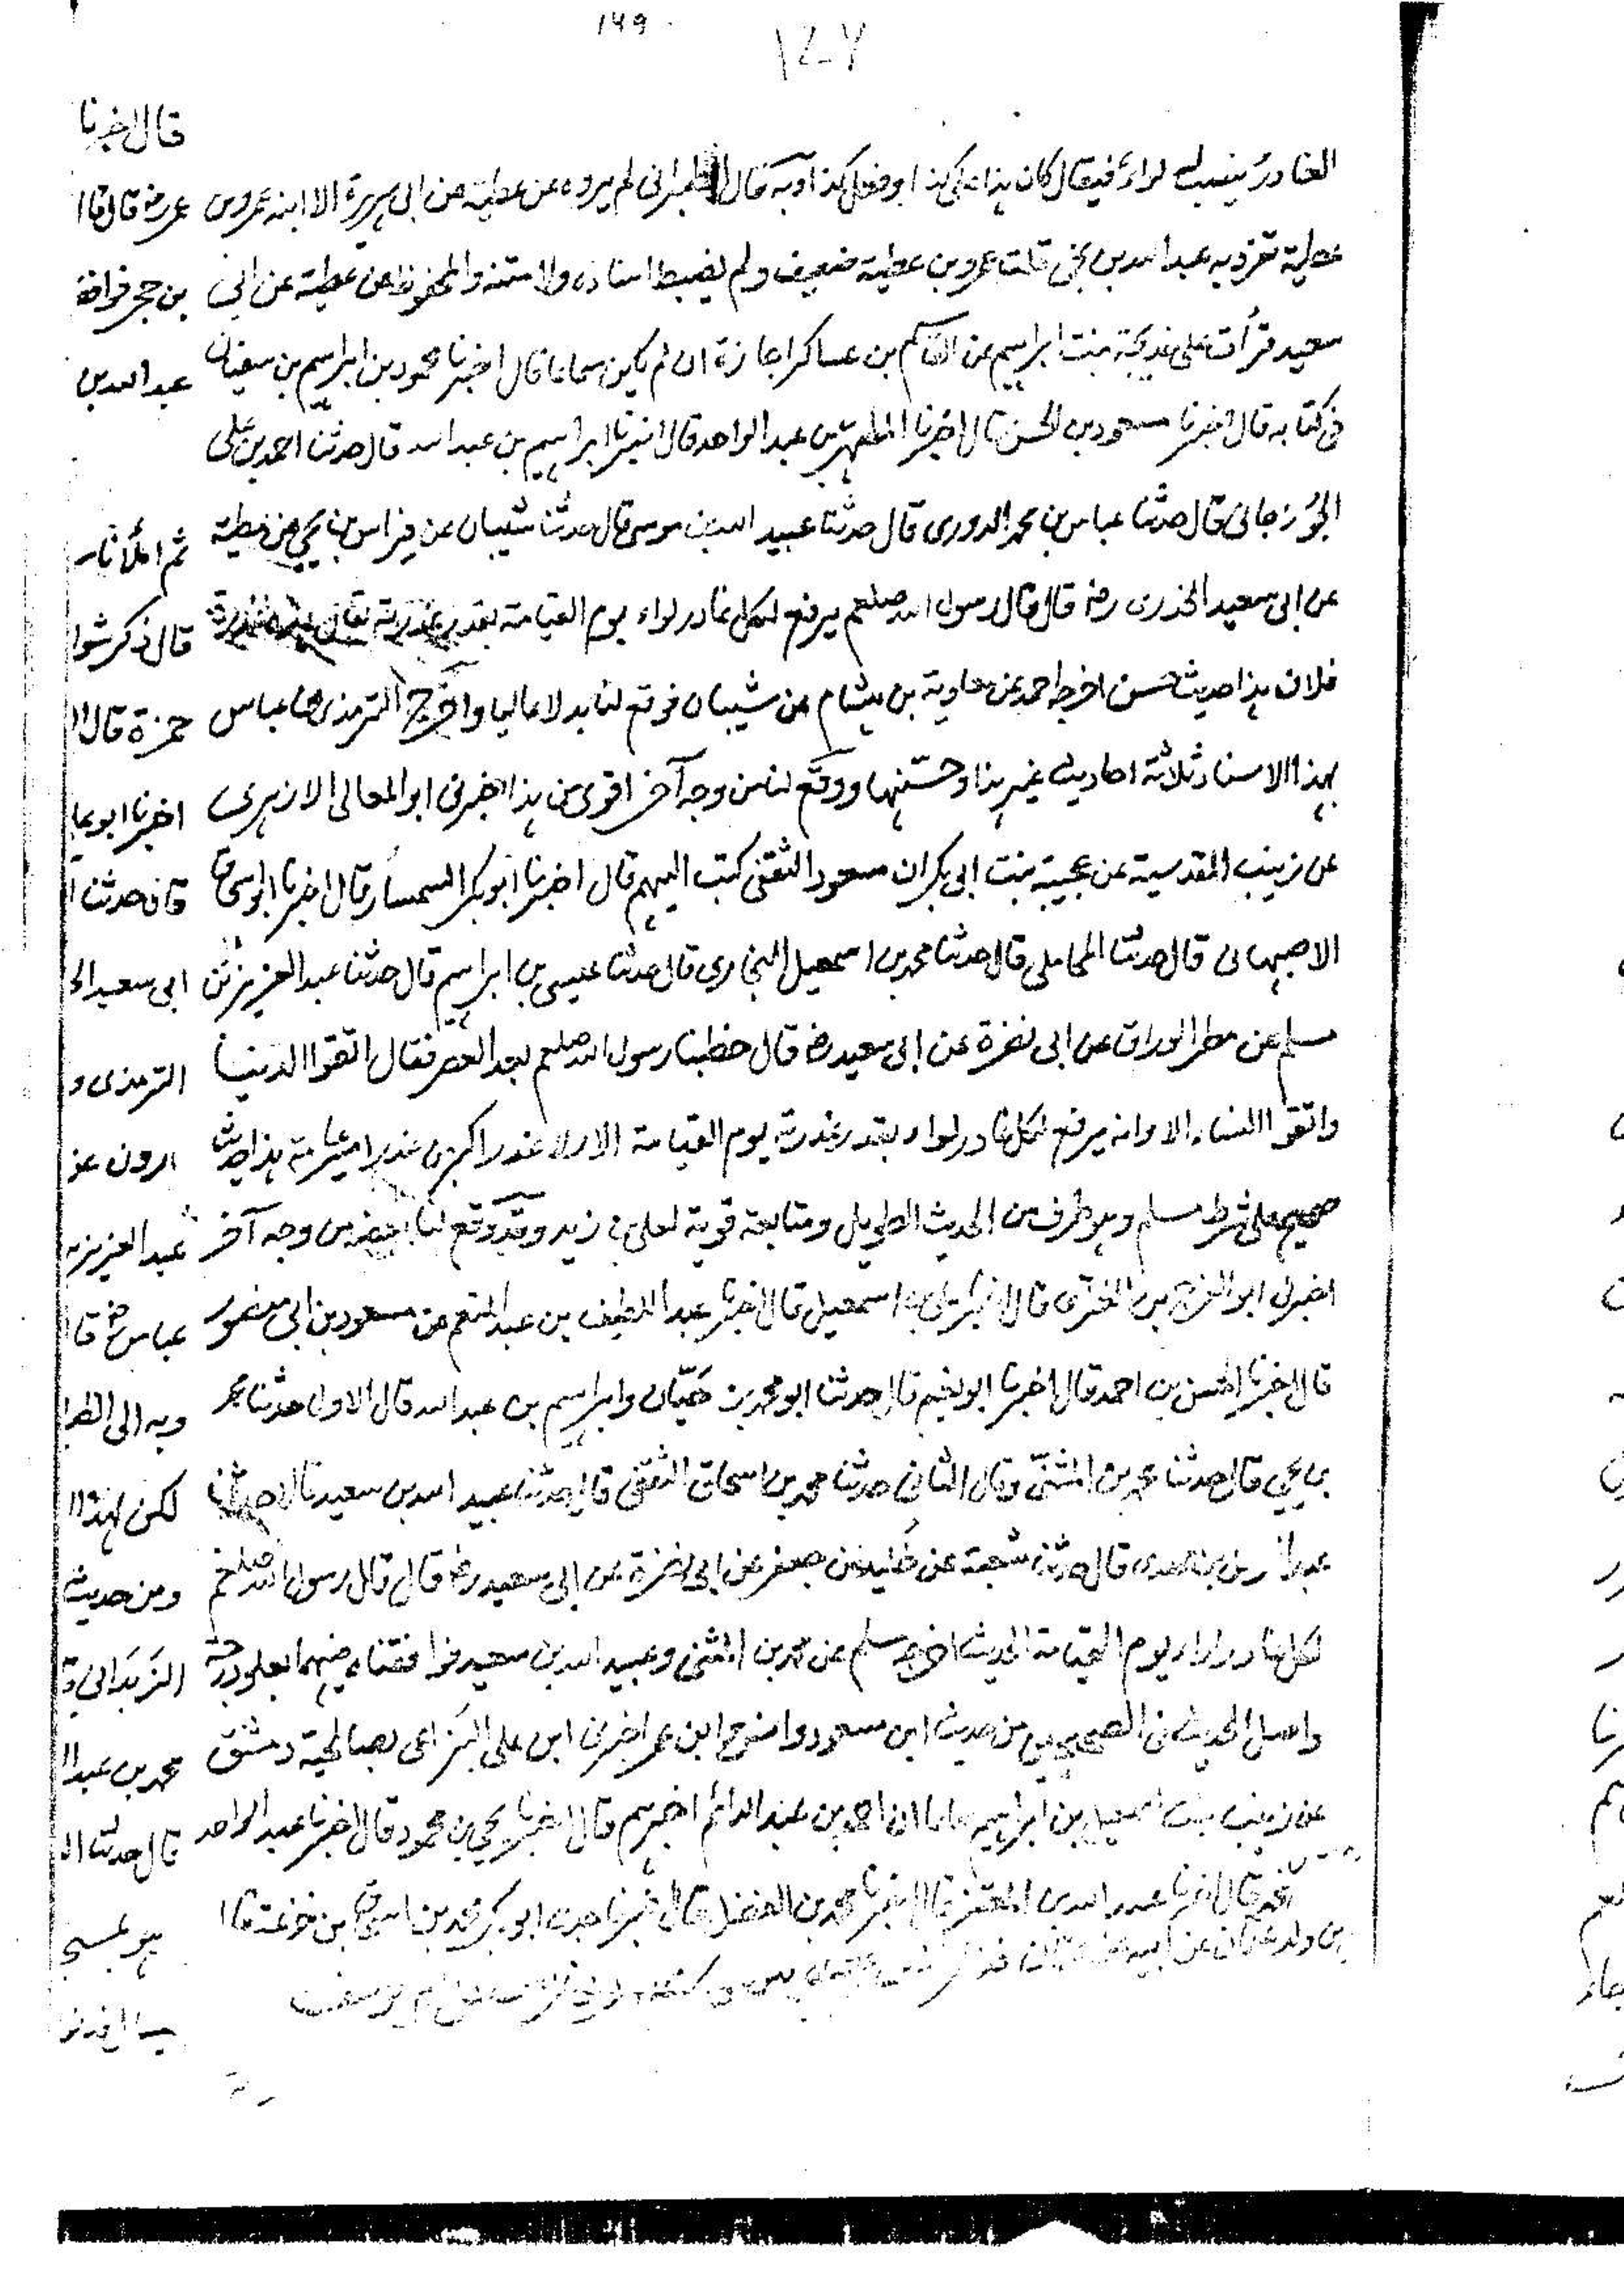 149
147
الغادر ينصب له لواء فيقال كان هذا على كذا وفعل كذا وبه قال الطبرانى لم يروه عن عطية عن ابى هريرة الا ابنه عمرو بن
عطية تفرد به عبد الله بن يحيى قلت عمرو بن عطية ضعيف ولم يضبط اسناده ولا متنه والمحفوظ عن عطية عن ابى
سعيد قرأت على خديجة بنت ابراهيم عن القاسم بن عساكر اجازة ان لم يكن سماعا قال اخبرنا محمود بن ابراهيم بن سفيان
فى كتابه قال اخبرنا مسعود بن الحسن قال اخبرنا المطهر بن عبد الواحد قال اخبرنا ابراهيم بن عبد الله قال حدثنا احمد بن على
الجوزجانى قال حدثنا عباس بن محمد الدورى قال حدثنا عبيد الله بن موسى قال حدثنا شيبان عن فراس بن يحيى عن عطية
عن ابى سعيد الخدرى رضـ قال قال رسول الله صلعم يرفع لكل غادر لواء يوم القيامة بقدر غدرته يقال هذه غدرة
فلان هذا حديث حسن اخرجه احمد عن معاوية بن هشام عن شيبان فوقع لنا بدلا عاليا واخرج الترمذى عن عباس
بهذا الاسناد ثلاثة احاديث غير هذا وحسّنها ووقع لنا من وجه آخر اقوى من هذا اخبرنى ابو المعالى الازهرى
عن زينب المقدسية عن عجيبة بنت ابى بكر ان مسعود الثقفى كتب اليهم قال اخبرنا ابو بكر السمسار قال اخبرنا ابو اسحق
الاصبهانى قال حدثنا المحاملى قال حدثنا محمد بن اسمعيل البخارى قال حدثنا عيسى بن ابراهيم قال حدثنا عبد العزيز بن
مسلم عن مطر الوراق عن ابى نضرة عن ابى سعيد رضـ قال خطبنا رسول الله صلعم بعد العصر فقال اتقوا الدنيا
واتقوا النساء الا وانه يرفع لكل غادر لواء بقدر غدرته يوم القيامة الا ولا غدر اكبر من غدر امير عامة هذا حديث
صحيح على شرط مسلم وهو طرف من الحديث الطويل ومتابعة قوية لعلى بن زيد وقد وقع لنا بعضه من وجه آخر
اخبرنى ابو الفرج بن الغزى قال اخبرنا على بن اسمعيل قال اخبرنا عبد اللطيف بن عبد المنعم عن مسعود بن ابى منصور
قال اخبرنا الحسن بن احمد قال اخبرنا ابو نعيم قال حدثنا ابو محمد بن حيّان وابراهيم بن عبد الله قال الاول حدثنا محمد
بن يحيى قال حدثنا محمد بن المثنى وقال الثانى حدثنا محمد بن اسحاق الثقفى قال حدثنا عبيد الله بن سعيد قالا حدثنا
عبد الرحمن بن مهدى قال حدثنا شعبة عن خليد بن جعفر عن ابى نضرة عن ابى سعيد رضـ قال قال رسول الله صلعم
لكل غادر لواء يوم القيامة الحديث اخرجه مسلم عن محمد بن المثنى وعبيد الله بن سعيد فوافقناه فيهما بعلو درجة
واصل الحديث فى الصحيحين من حديث ابن مسعود وابن عمر اخبرنى ابن على البزاعى بصالحية دمشق
عن زينب بنت اسمعيل بن ابراهيم سماعا ان احمد بن عبد الدائم اخبرهم قال اخبرنا يحيى بن محمود قال اخبرنا عبد الواحد
بن محمد قال اخبرنا عبيد الله بن المعتز قال اخبرنا محمد بن الفضل قال اخبرنا جدى ابو بكر محمد بن اسحق بن خزيمة قال
قال اخبرنا
عمر رضـ قال قا
بن حجر فوافقنا
عبد الله بن
ثم املأ نا
قال ذكر شوا
حمزة قال ا
اخبرنا ابو عا
قال حدثنا ا
ابى سعيد الخ
الترمذى و
هرون عن
عبد العزيز بن
عباس رضـ قا
وبه الى الطبر
لكن لهذا ا
ومن حديث
الزبدانى و
محمد بن عبد ا
قال حدثنا ا